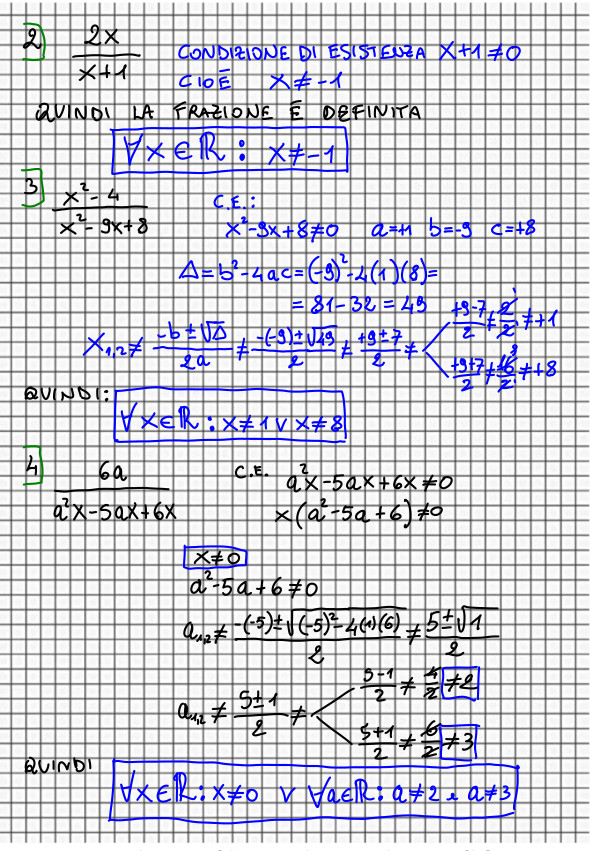 2) 2x / x+1 CONDIZIONE DI ESISTENZA x+1≠0
CIOĒ x≠-1
QUINDI LA FRAZIONE Ē DEFINITA
∀x∈ℝ : x≠-1
3) x²-4 / x²-9x+8 C.E.:
x²-9x+8≠0 a=+1 b=-9 c=+8
Δ=b²-4ac=(-9)²-4(1)(8)=
=81-32=49
x₁,₂≠ -b±√Δ / 2a ≠ -(-9)±√49 / 2 ≠ +9±7 / 2 ≠
+9-7 / 2 ≠ 2 / 2 ≠ +1
+9+7 / 2 ≠ 16 / 2 ≠ +8
QUINDI:
∀x∈ℝ : x≠1 ∨ x≠8
4) 6a / a²x-5ax+6x C.E. a²x-5ax+6x≠0
x(a²-5a+6)≠0
x≠0
a²-5a+6≠0
a₁,₂≠ -(-5)±√(-5)²-4(1)(6) / 2 ≠ 5±√1 / 2
a₁,₂ ≠ 5±1 / 2 ≠
5-1 / 2 ≠ 4 / 2 ≠2
5+1 / 2 ≠ 6 / 2 ≠3
QUINDI
∀x∈ℝ: x≠0 ∨ ∀a∈ℝ: a≠2 e a≠3